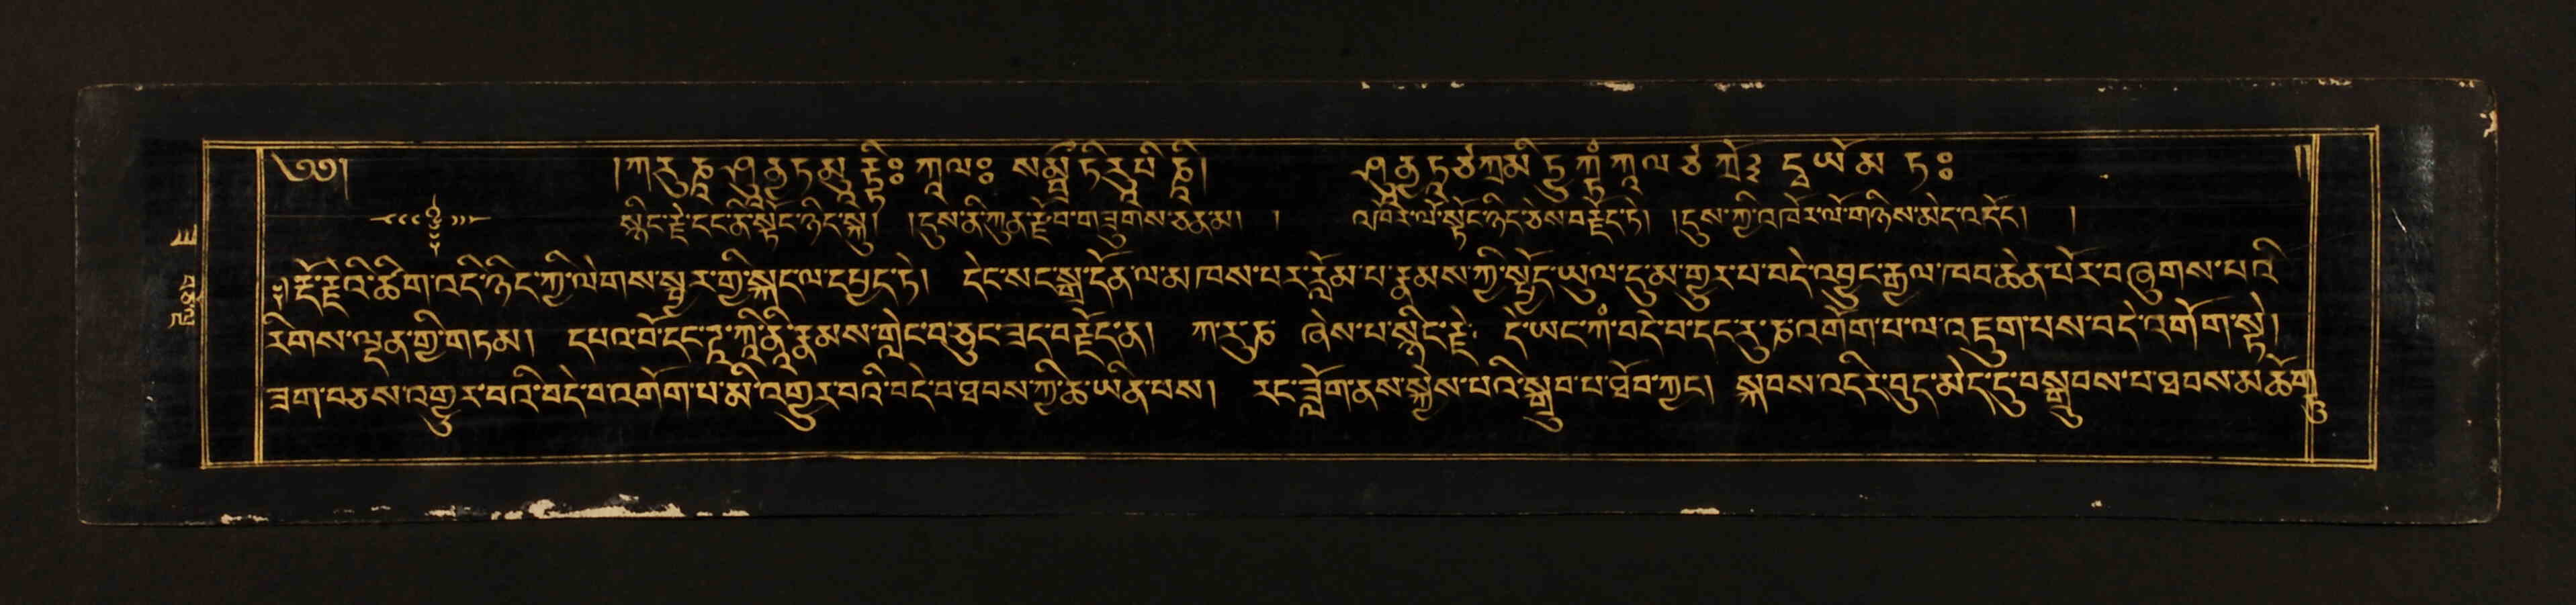 ༄༅། །ཀ་རུ་ཎཱ་ཤཱུནྱ་ཏ་མཱུརྟིཿ ཀཱལཿ སམྦྲྀ་ཏི་རཱུ་པི་ཎཱི། ཤཱུནྱ་ཏཱ་ཙཀྲ་མི་ཏྱུ་ཀྟཾ་ཀཱལ་ཙ་ཀྲོ྅་དྭ་ཡོ་མ་ཏཿ ༎
སྙིང་རྗེ་དང་ནི་སྟོང་ཉིད་སྐུ། །དུས་ནི་ཀུན་རྫོབ་གཟུགས་ཅན་མ། ། འཁོར་ལོ་སྟོང་ཉིད་ཅེས་བརྗོད་ཏེ། །དུས་ཀྱི་འཁོར་ལོ་གཉིས་མེད་འདོད། །
རྡོ་རྗེའི་ཚིག་འདི་ཉིད་ཀྱི་ལེགས་སྦྱར་གྱི་སྐད་ལ་དཔྱད་ཏེ། དེང་སང་སྒྲ་དོན་ལ་མཁས་པར་རློམ་པ་རྣམས་ཀྱི་སྤྱོད་ཡུལ་དུ་མ་གྱུར་པ་བདེ་འབྱུང་རྒྱལ་ཁབ་ཆེན་པོར་བཞུགས་པའི
རིགས་ལྡན་གྱི་གཏམ། དཔའ་བོ་དང་ཌཱ་ཀི་ནཱི་རྣམས་གླེང་བ་ཅུང་ཟད་བརྗོད་ན། ཀ་རུ་ཎ ཞེས་པ་སྙིང་རྗེ། དེ་ཡང་ཀཾ་བདེ་བ་དང་རུ་ཎ་འགོག་པ་ལ་འཇུག་པས་བདེ་འགོག་སྟེ།
ཟག་བཅས་འགྱུར་བའི་བདེ་བ་འགོག་པ་མི་འགྱུར་བའི་བདེ་བ་ཐབས་ཀྱི་ཆ་ཡིན་པས། རང་ཟློག་ནས་སྐྱེས་པའི་སྒྲུབ་པ་ཐོབ་ཀྱང། སྐབས་འདིར་བུད་མེད་དུ་བསྒྲུབས་པ་ཐབས་མཆོག་ཏུ